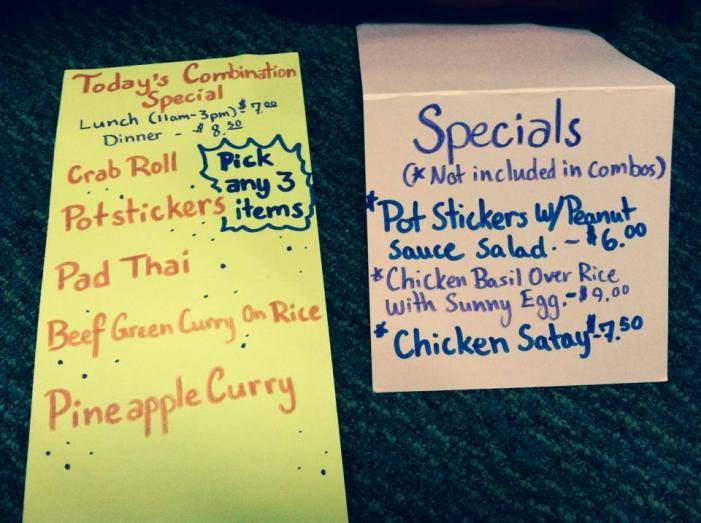 Today's Combination
Special
Lunch (11am-3pm) - $7.00
Dinner - $8.50
Pick
any 3
items
Crab Roll
Potstickers
Pad Thai
Beef Green Curry On Rice
Pineapple Curry
Specials
(* Not included in Combos)
* Pot Stickers W/ Peanut
Sauce Salad. - $6.00
* Chicken Basil Over Rice
With Sunny Egg. - $9.00
* Chicken Satay - $7.50